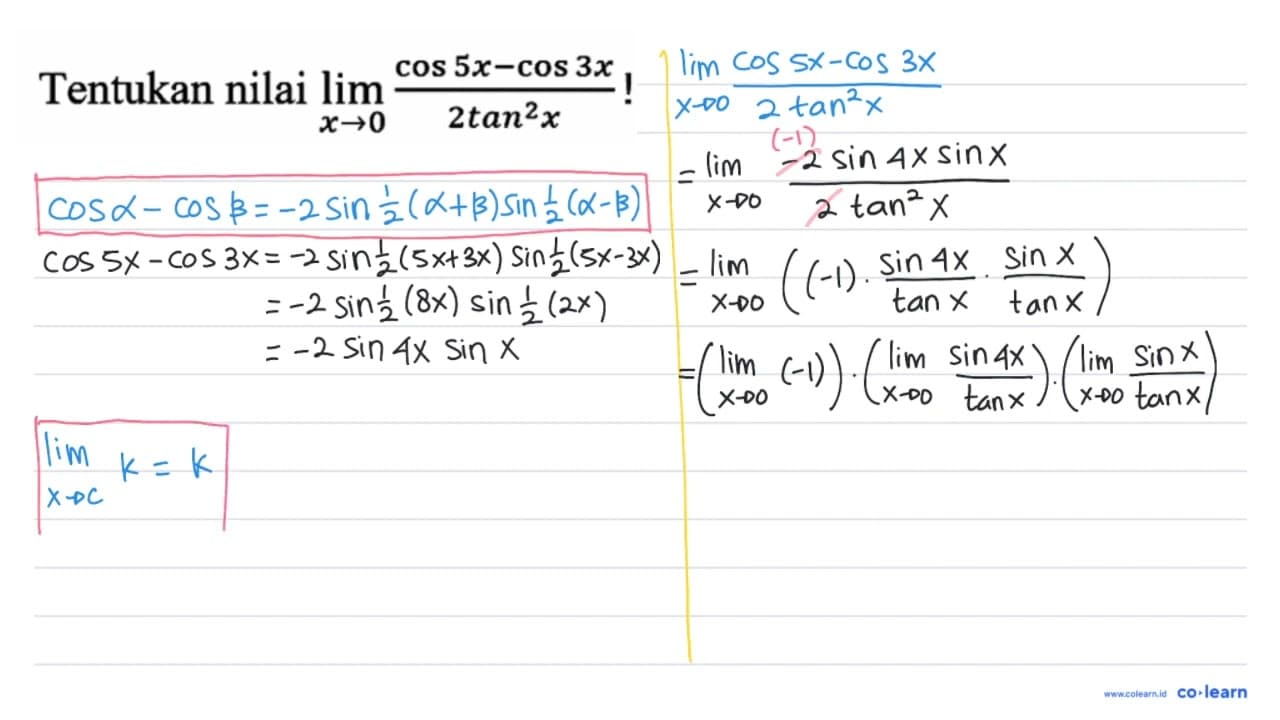 Tentukan nilai lim x→0 (cos 5x−cos 3x)/(2tan²x) !
cos α − cos β = −2 sin ½ (α+β) sin ½ (α−β)
cos 5x − cos 3x = −2 sin ½ (5x+3x) sin ½ (5x−3x)
= −2 sin ½ (8x) sin ½ (2x)
= −2 sin 4x sin x
lim x→c k = k
lim x→0 (cos 5x − cos 3x)/(2 tan² x)
(−1)
= lim x→0 (−2 sin 4x sin x)/(2 tan² x)
= lim x→0 ((−1) · (sin 4x)/(tan x) · (sin x)/(tan x))
= (lim x→0 (−1)) · (lim x→0 (sin 4x)/(tan x)) · (lim x→0 (sin x)/(tan x))
www.colearn.id co·learn